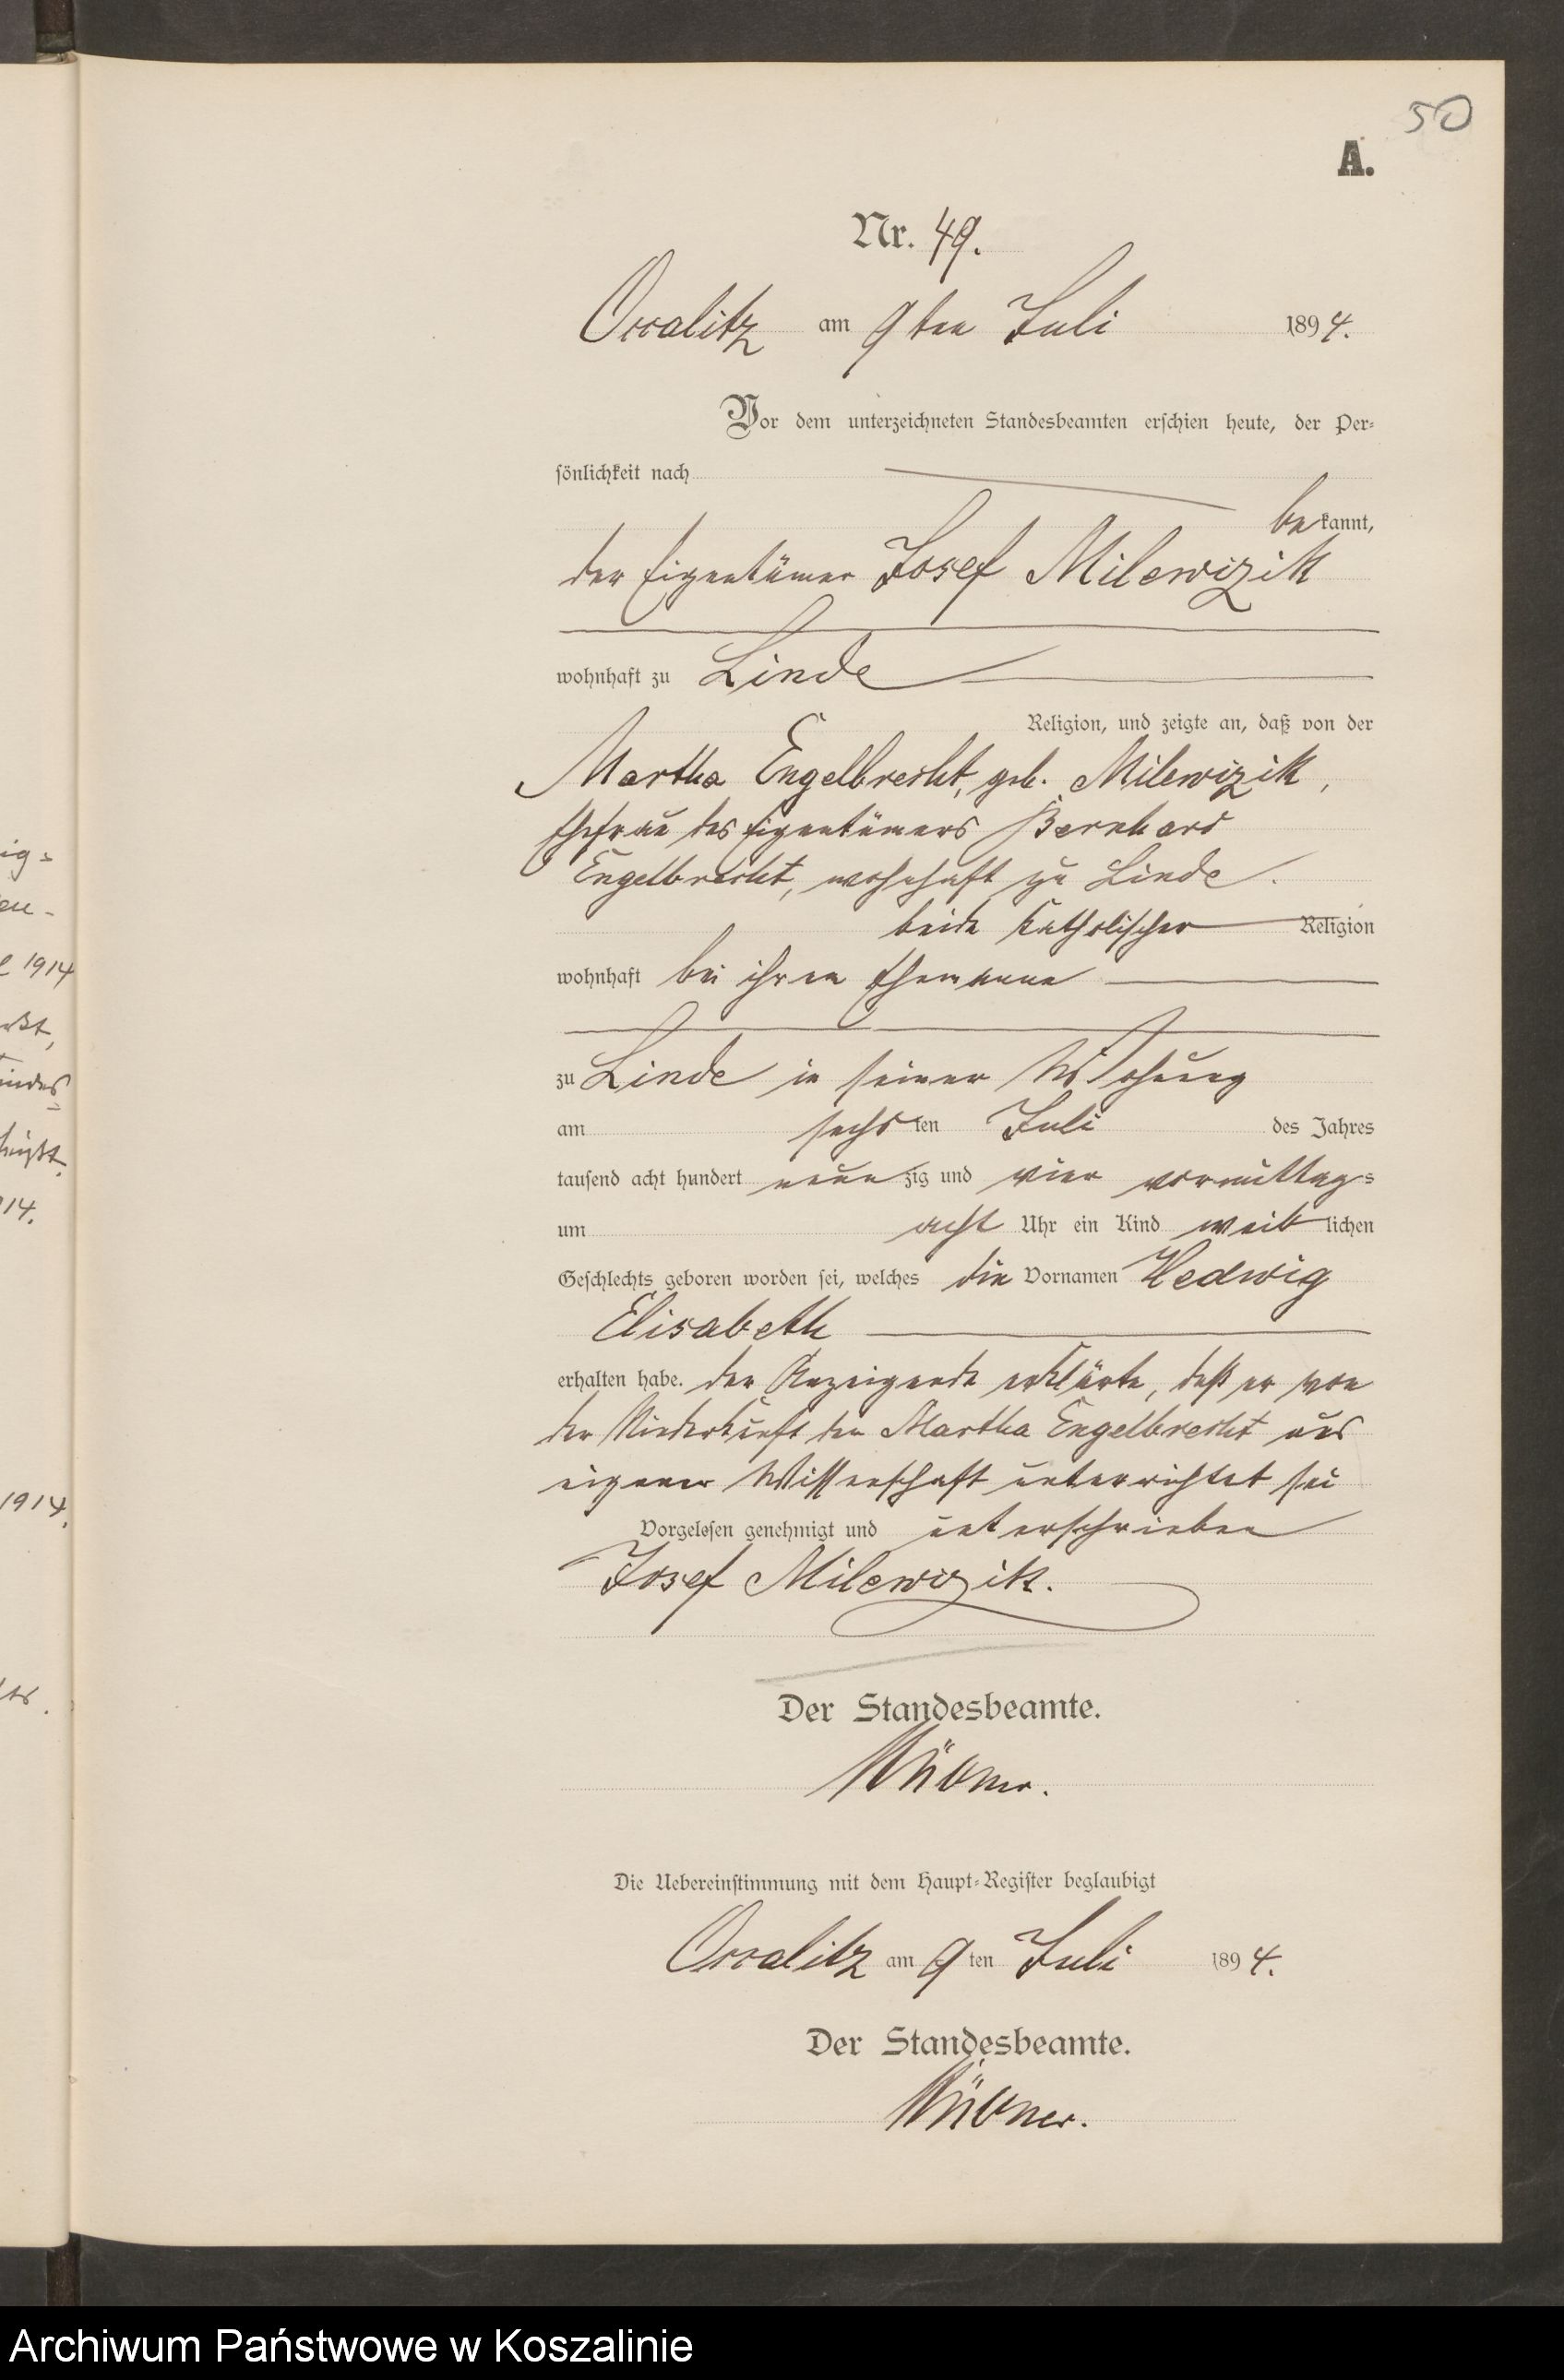 50
A.
Nr. 49.
am 9ten Juli 1894.
Vor dem unterzeichneten Standesbeamten erschien heute, der Per-
sönlichkeit nach
bekannt,
der Eigentümer Josef Milewizik
wohnhaft zu Linde
Religion, und zeigte an, daß von der
Martha Engelbrecht, geb. Milewizik,
Ehefrau des Eigentümers Bernhard
Engelbrecht, wohnhaft zu Linde.
beide katholischer Religion
wohnhaft bei ihrem Ehemanne
zu Linde in seiner Wohnung
am sechsten Juli des Jahres
tausend acht hundert neunzig und vier vormittags
um acht Uhr ein Kind weiblichen
Geschlechts geboren worden sei, welches die Vornamen Hedwig
Elisabeth
erhalten habe. der Anzeigende erklärte, daß er von
der Niederkunft der Martha Engelbrecht aus
eigener Wissenschaft unterrichtet sei
Vorgelesen genehmigt und unterschrieben
Josef Milewizik.
Der Standesbeamte.
Die Uebereinstimmung mit dem Haupt-Register beglaubigt
am 9ten Juli 1894.
Der Standesbeamte.
ig-
en-
1914
14.
1914.
Archiwum Państwowe w Koszalinie